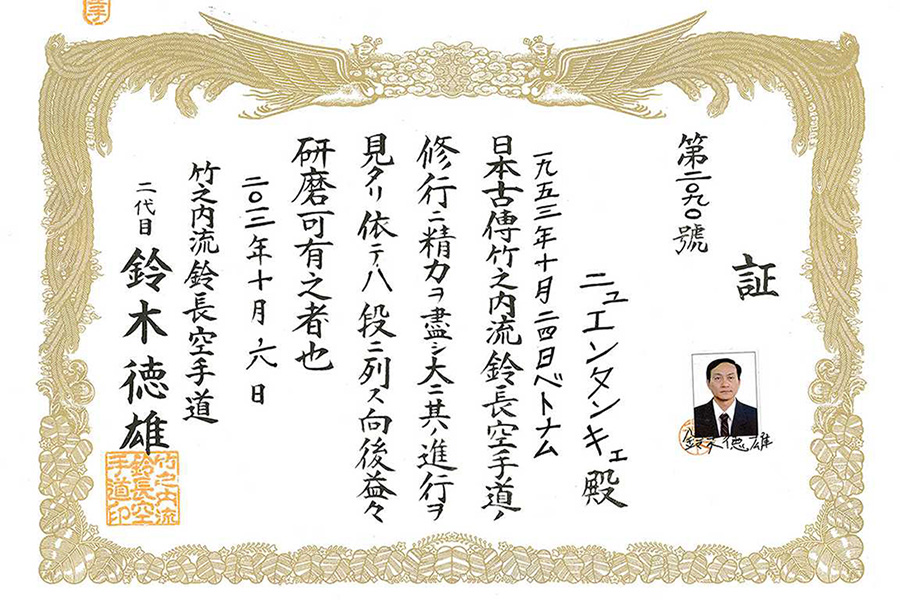 証
第二〇九〇號
ニュエンタンキェ殿
一九五三年十月二四日ベトナム
日本古傳竹之内流鈴長空手道ノ
修行ニ精力ヲ盡シ大ニ其ノ進行ヲ
見タリ依テ八段ニ列ス向後益々
研磨可有之者也
二〇一二年十月六日
竹之内流鈴長空手道
二代目 鈴木徳雄
鈴木徳雄
竹之内流
鈴長空
手道印